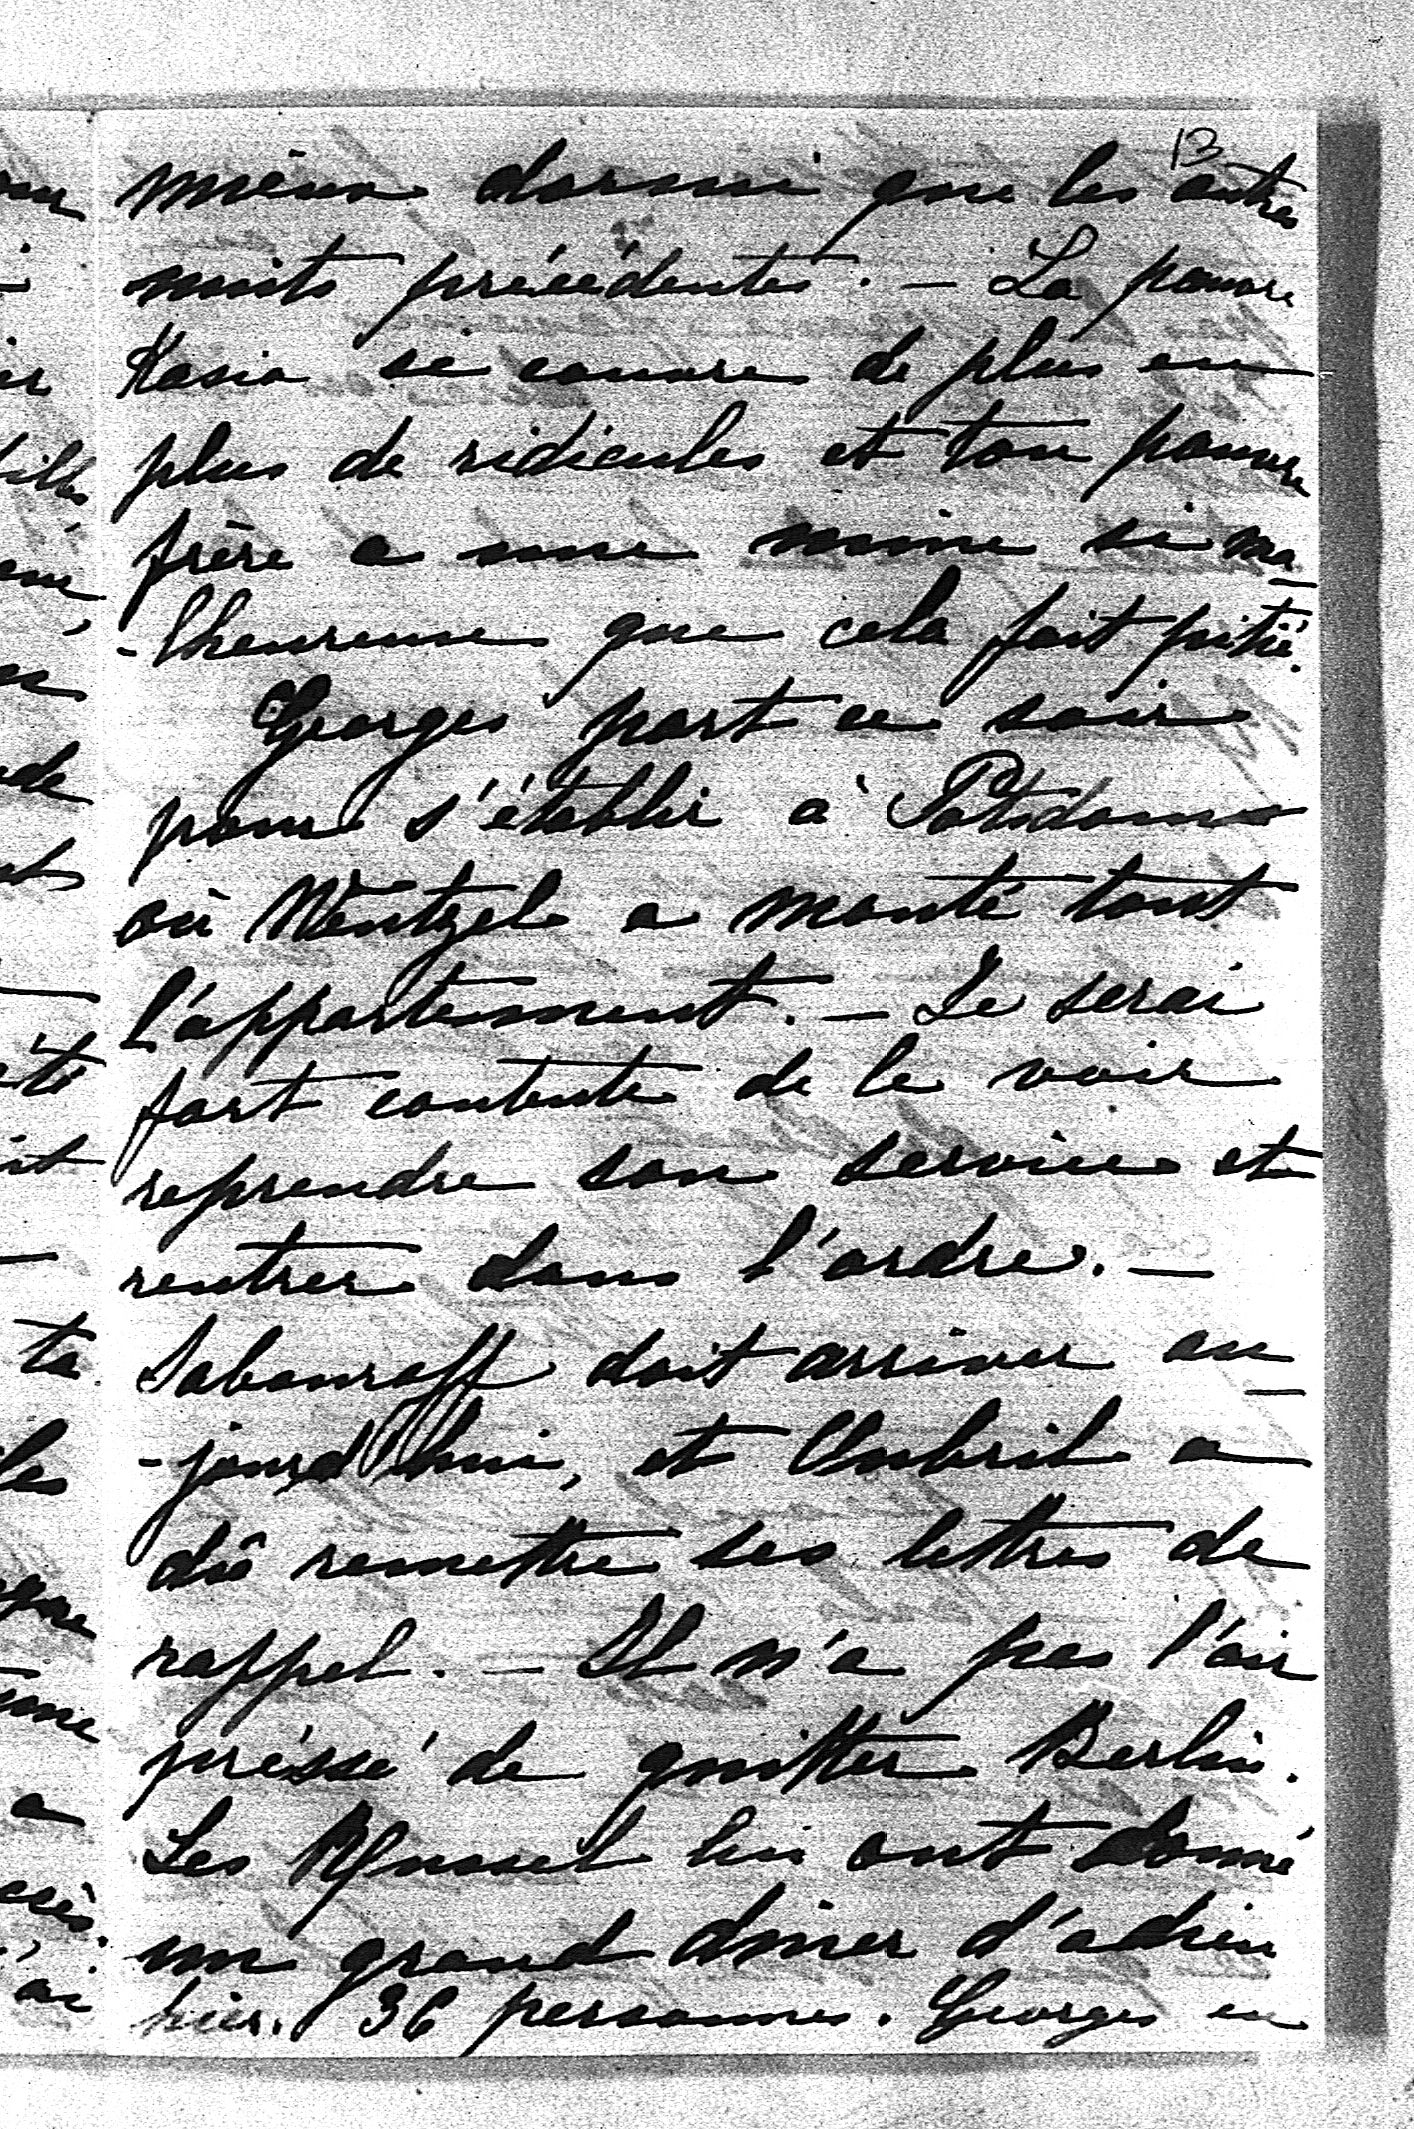 13
mieux dormi que les autres
nuits précédentes. — La pauvre
Kasia se couvre de plus en
plus de ridicules et ton pauvre
frère a une mine si ma-
-lheureuse que cela fait pitié.
Georges part ce soir
pour s'établir à Potsdam
où Wentzel a monté tout
l'appartement. — Je serai
fort contente de le voir
reprendre son service et
rentrer dans l'ordre. —
Sabouroff doit arriver au-
-jourd'hui, et Oubril a
dû remettre ses lettres de
rappel. — Il n'a pas l'air
préssé de quitter Berlin.
Les Russel lui ont donné
un grand diner d'adieu
hier. 36 personnes. Georges en